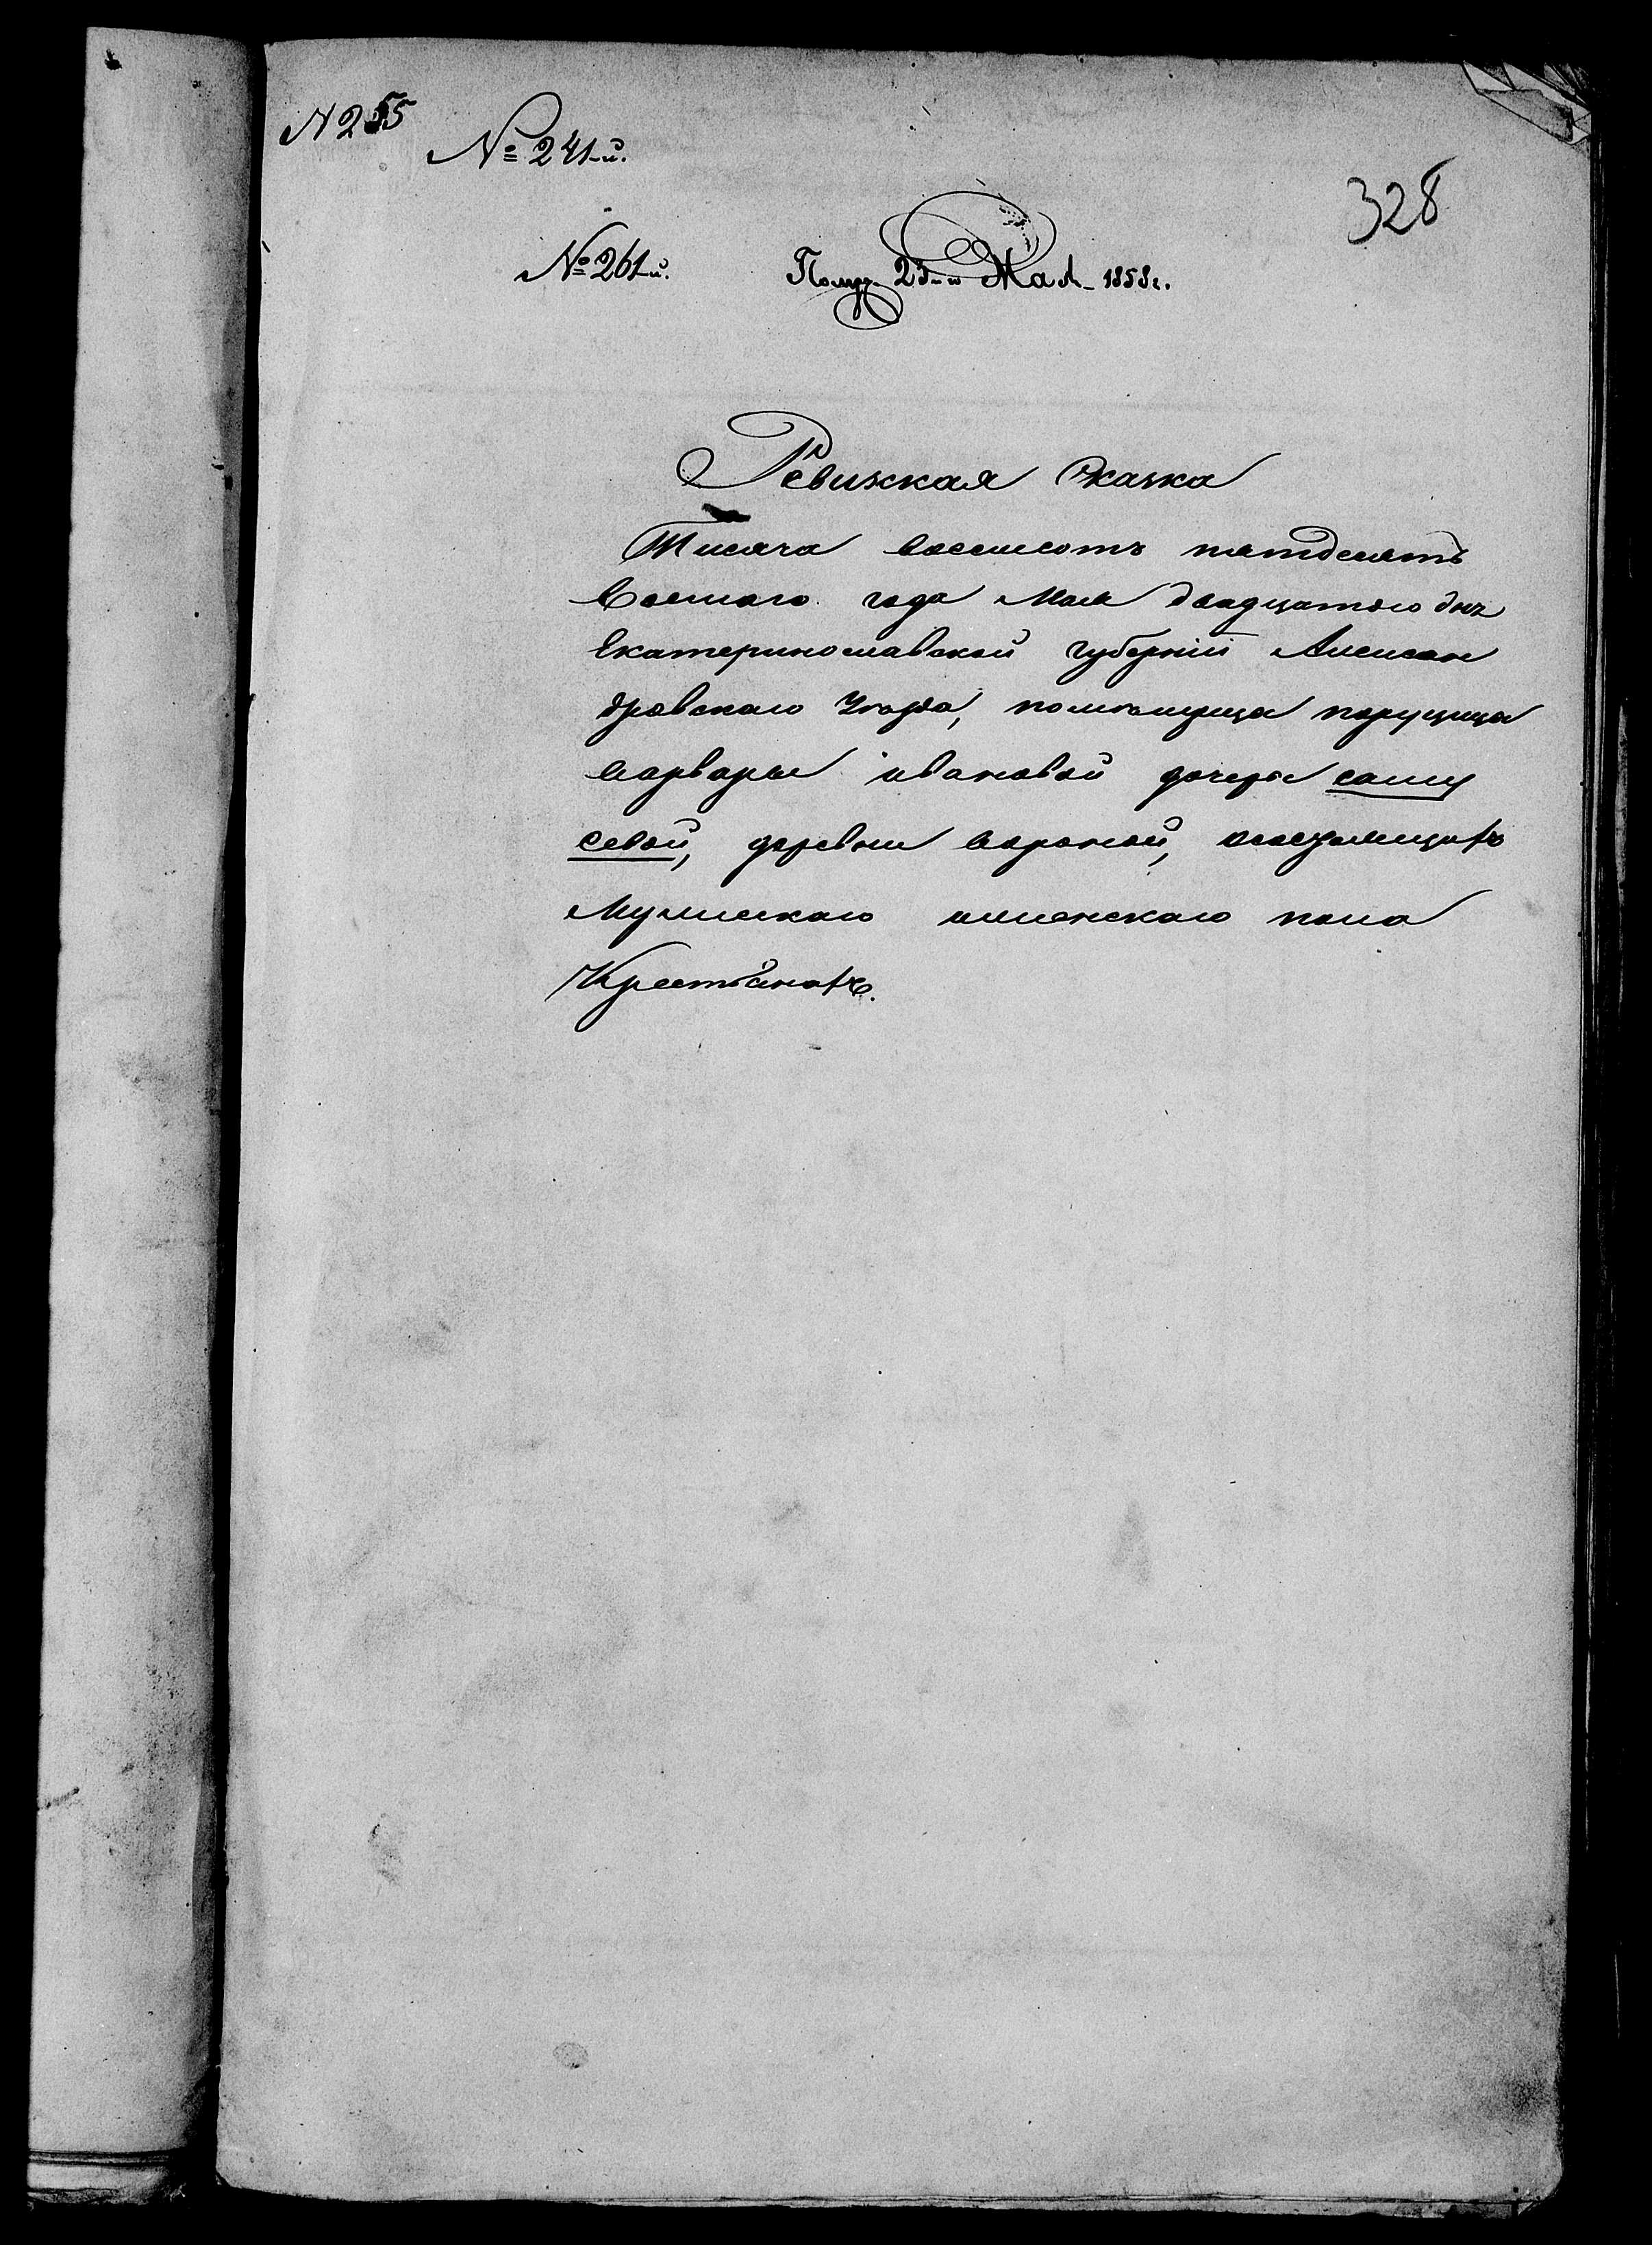 N 255
№ 241-й.
328
№ 261-й. Получ. 23-го Мая 1858 г.
Ревижская Сказка
Тисяча восемсотъ пятдесятъ
Восмаго года Мая двадцатого дня
Екатеринославской губернии Алексан
дровскаго Уезда, помѣщица поручица
варвары ивановой дочери саму
севой, деревни вороной, о состоящихъ
Мужескаго и женскаго пола
Крестьянахъ.